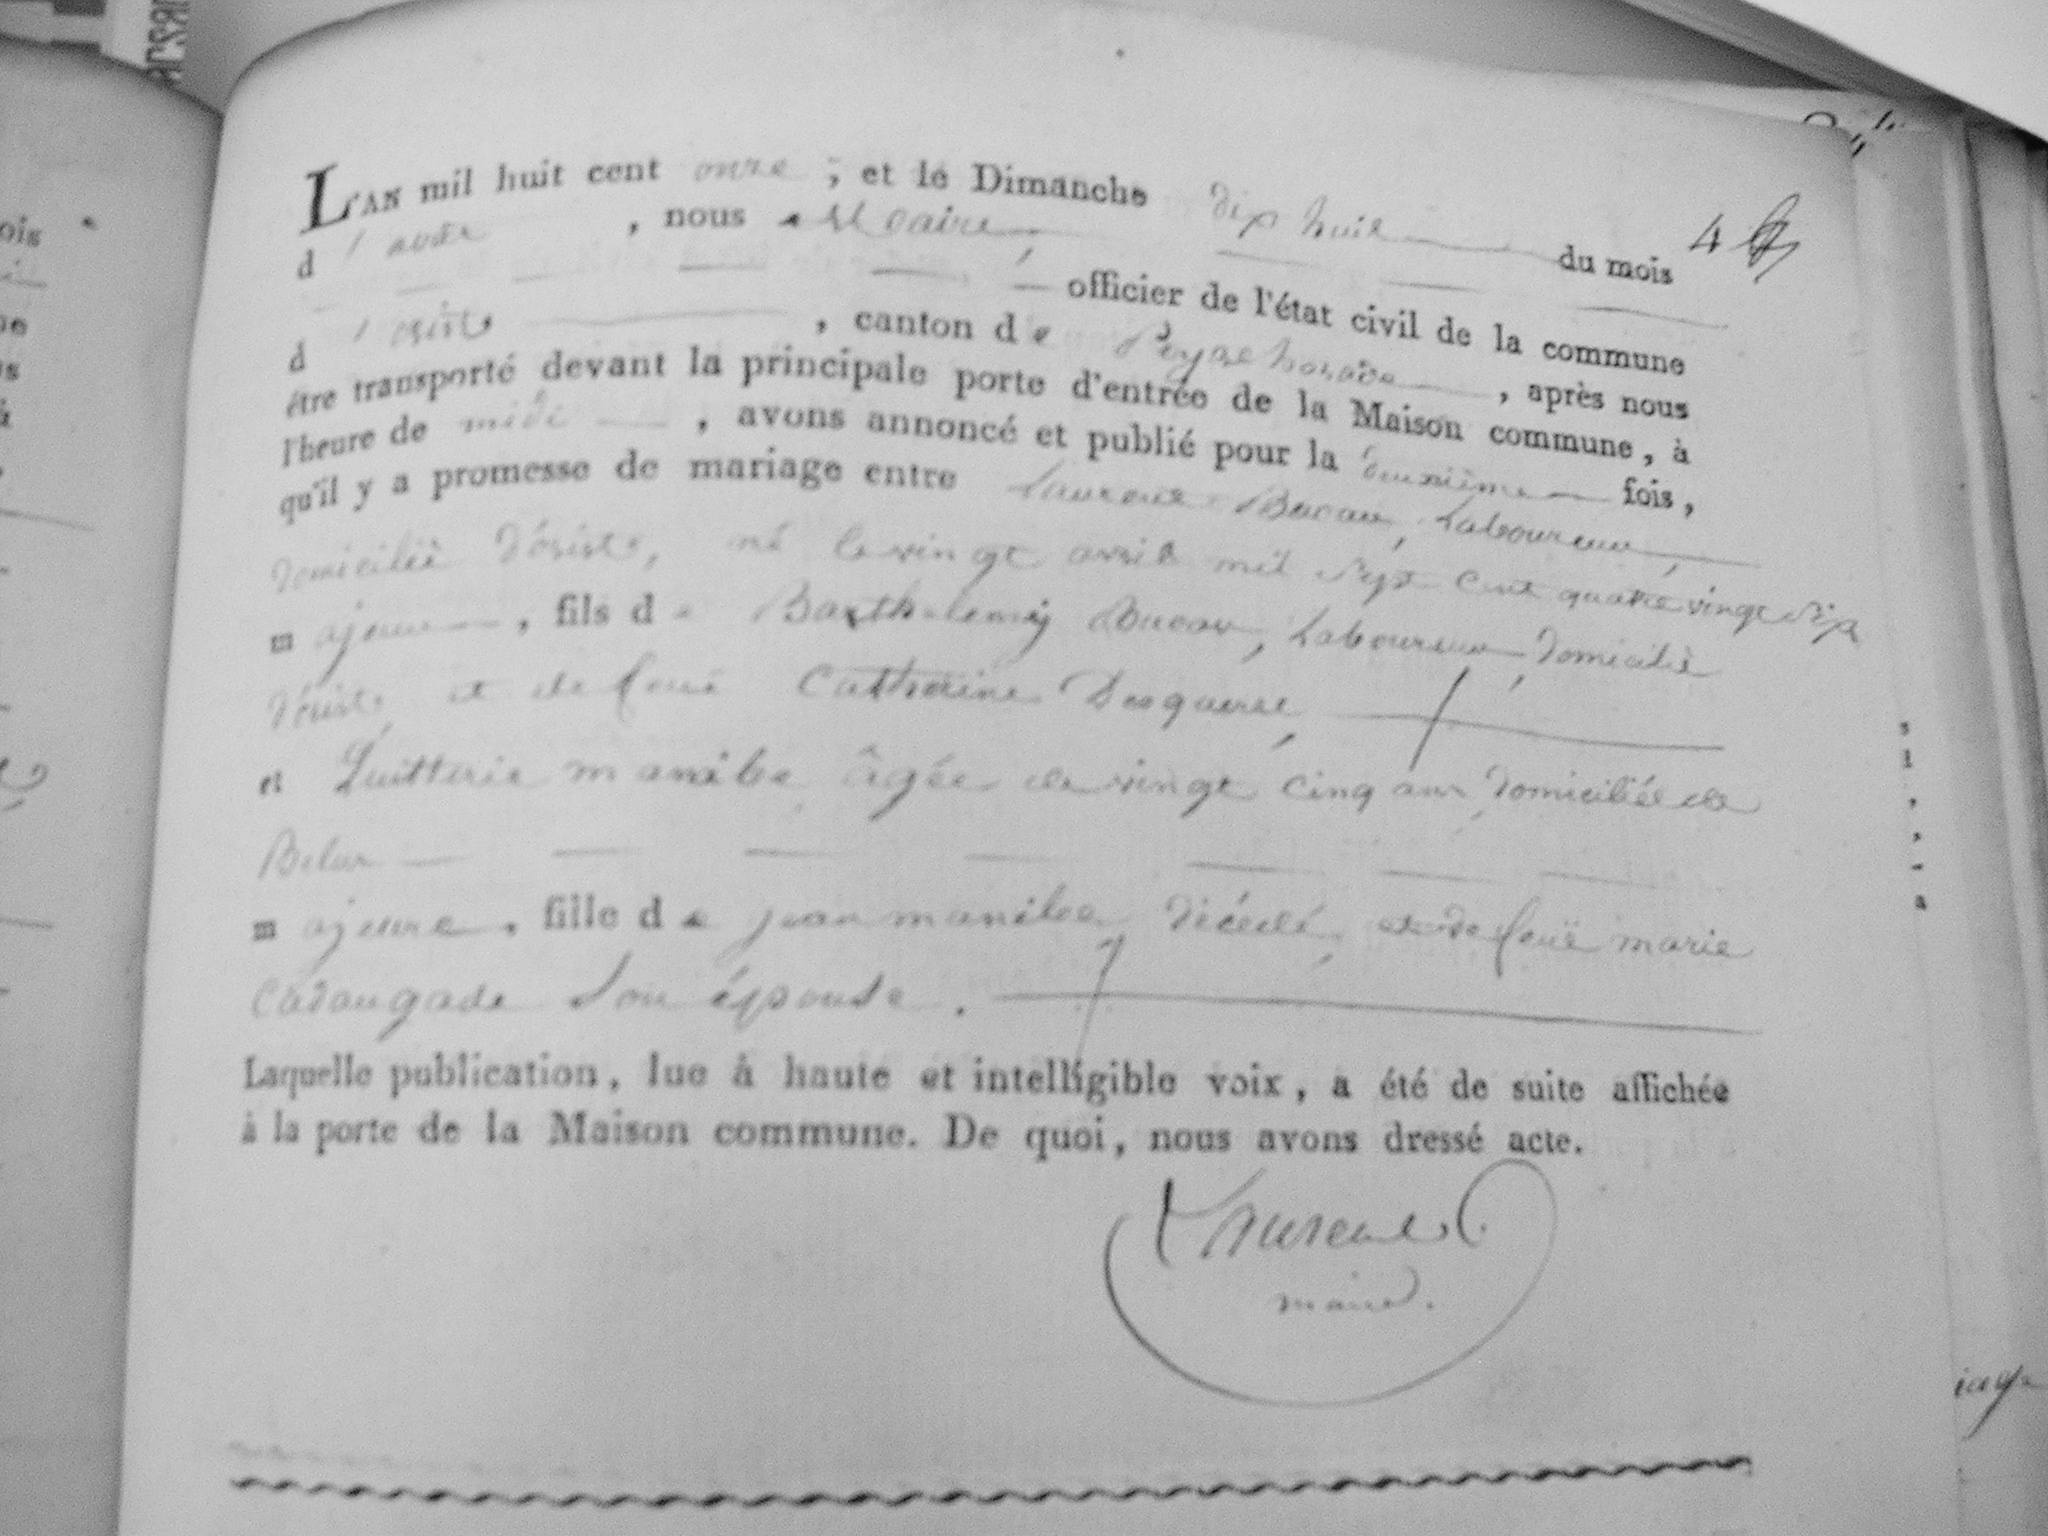 L'AN mil huit cent onze, et le Dimanche dix huit du mois
d'août, nous Maire,
officier de l'état civil de la commune
d'orist, canton de Peyrehorade, après nous
être transporté devant la principale porte d'entrée de la Maison commune, à
l'heure de midi, avons annoncé et publié pour la deuxième fois,
qu'il y a promesse de mariage entre Ducau, Laboureur,
domicilié d'orist, né le vingt avril mil sept cent quatre vingt dix
majeur, fils de Barthelemy Ducau, Laboureur, domicilié
d'orist, et de feue Catherine
et Quitterie manibe, âgée de vingt cinq ans, domiciliée de
Belus
majeure, fille de jean manibe, décédé, et de feuë marie
Cadaugade Son épouse.
Laquelle publication, lue à haute et intelligible voix, a été de suite affichée
à la porte de la Maison commune. De quoi, nous avons dressé acte.
maire.
4